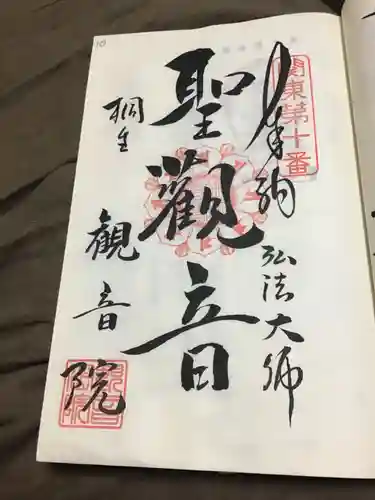 関東第十番
奉納 弘法大師
聖觀音
桐生 観音院
10